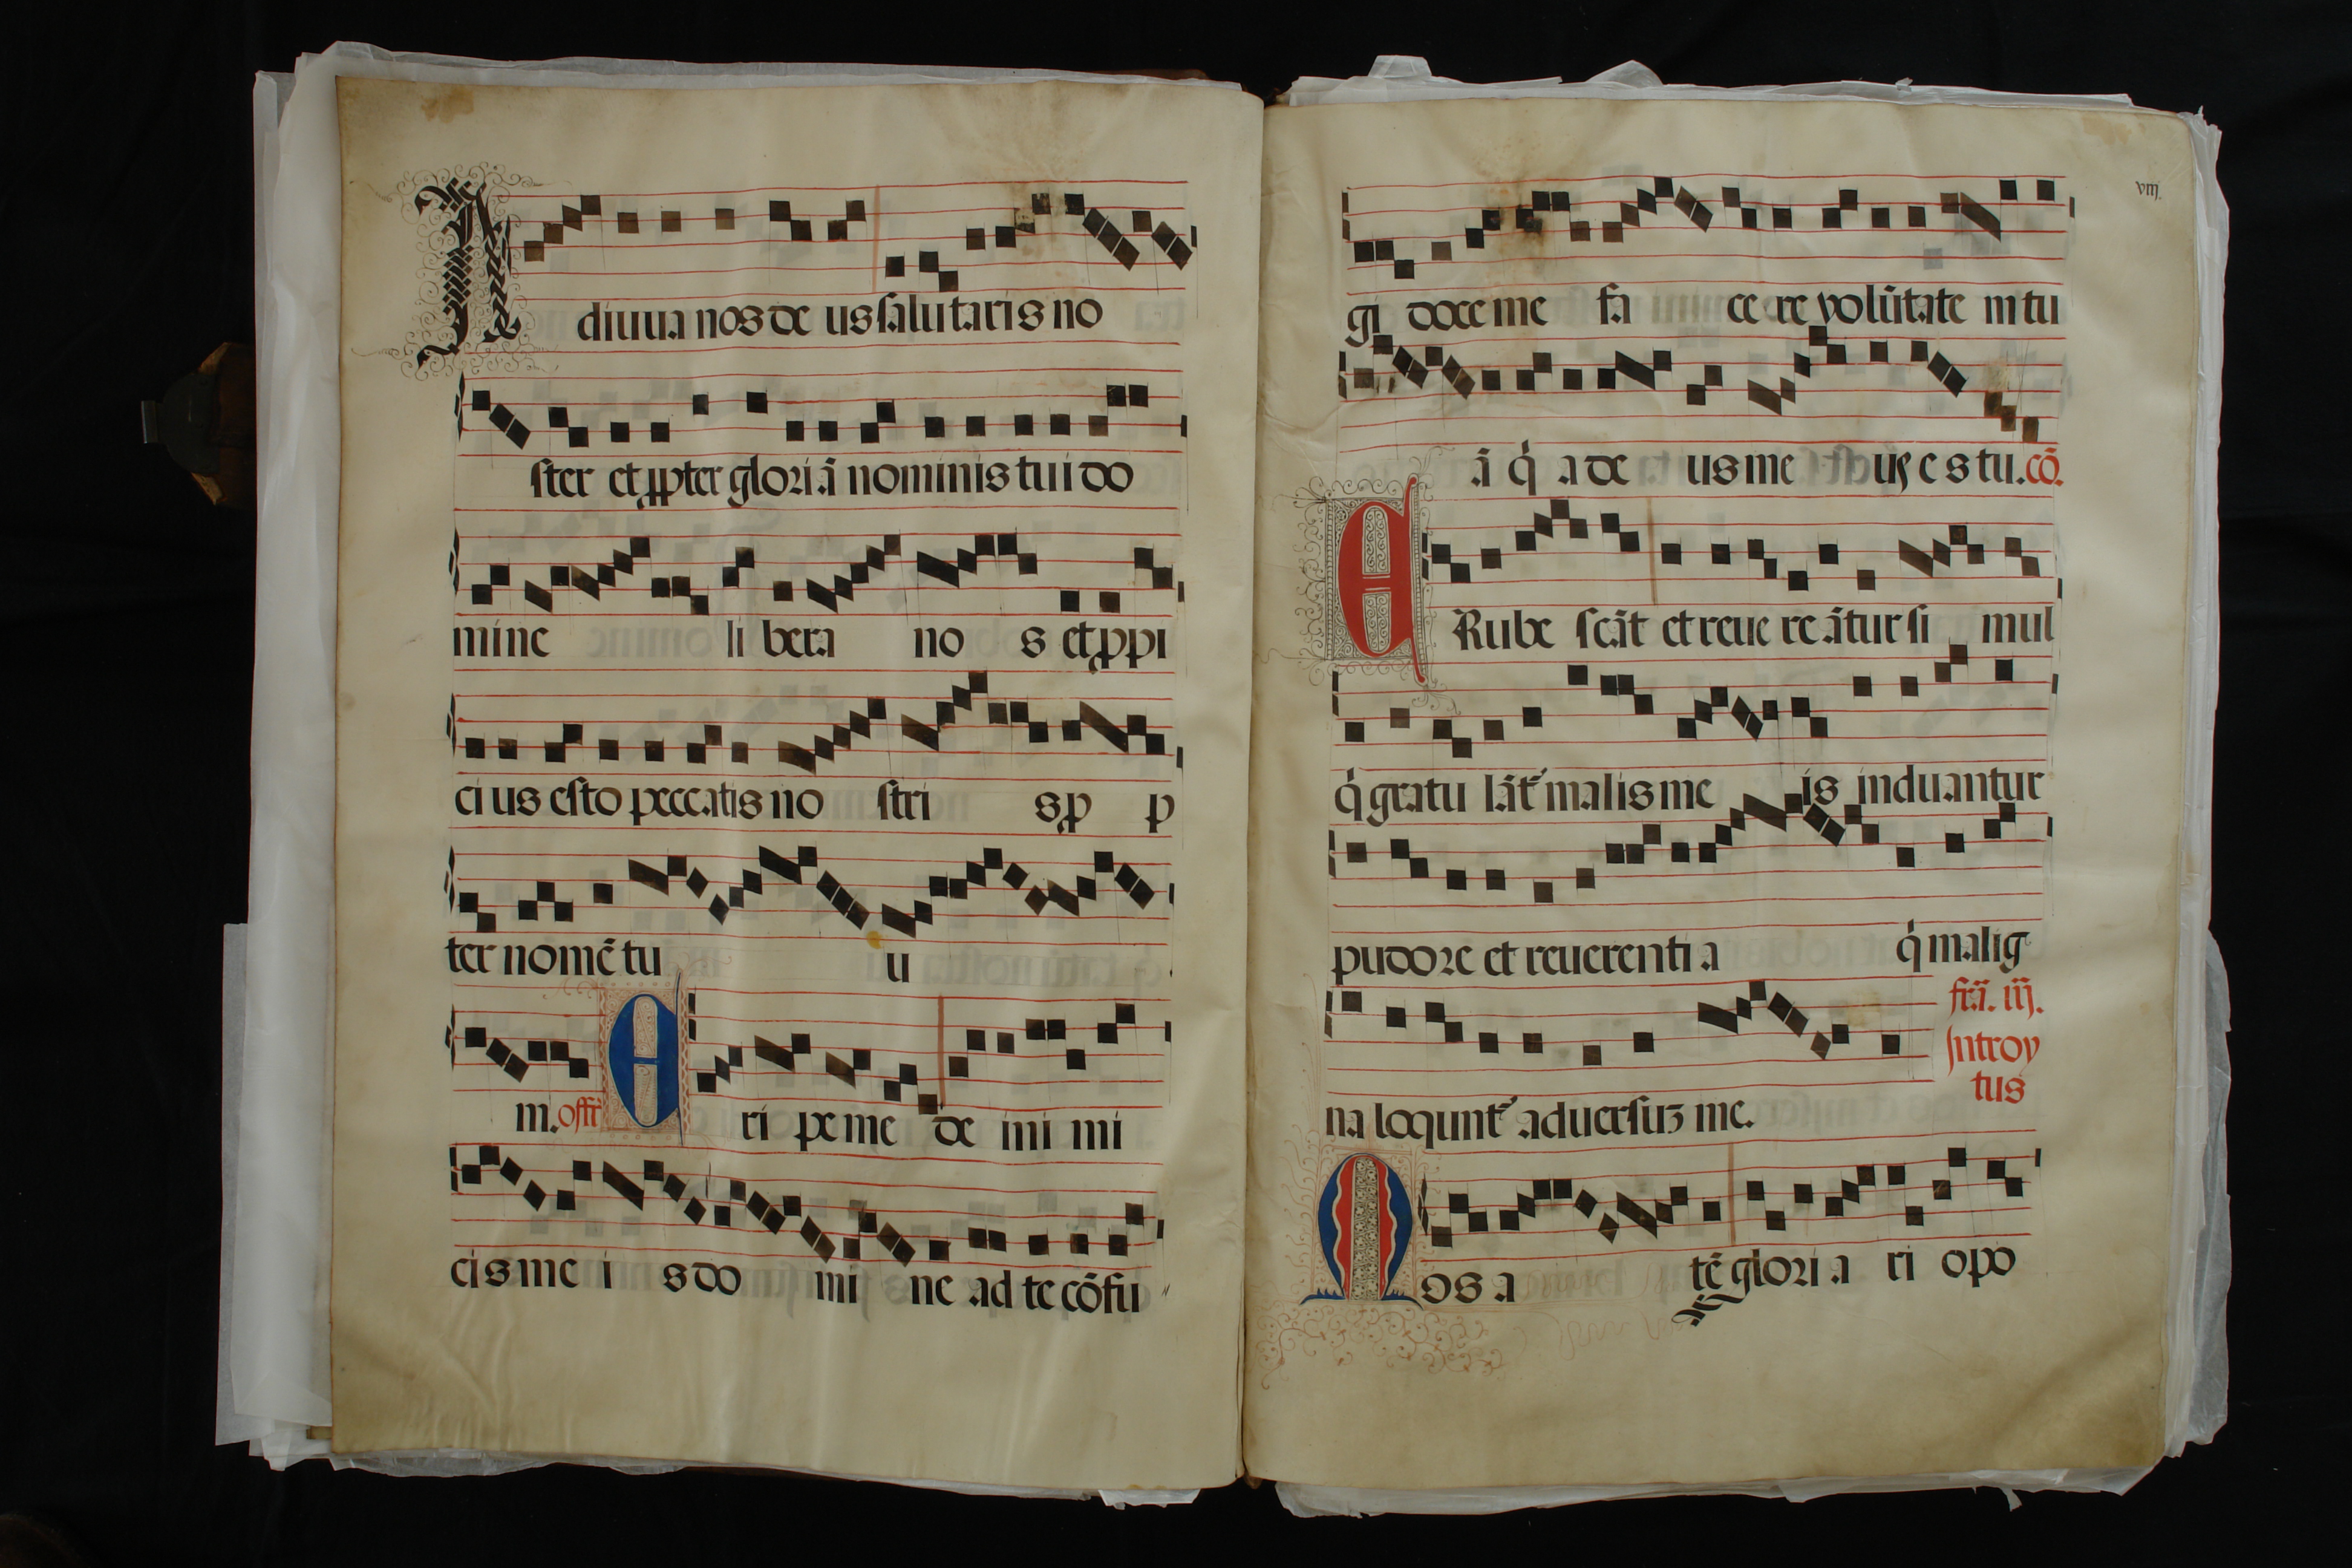 Adiuua nos de us salutaris no
ster et ꝓpter gloriā nominis tui do
mine li bera no s et ꝓpi
ci us esto peccatis no stri s ꝓp p
ter nomē tu u
m. offr̄ E ri pe me de i ni mi
cis me i s do mi ne ad te cōfu
viij.
gi doce me fa ce re volūtate m tu
ā q̇ a de us me us e s tu. cō.
E Rube scāt et reue re ātur si mul
q̇ gratu lāt᷑ malis me is induantur
pudore et reuerenti a q̇ malig
na loqunt᷑ aduersuꝫ me.
fr̄ā. iij.
Introy
tus
Nos a tē glori a ri opo